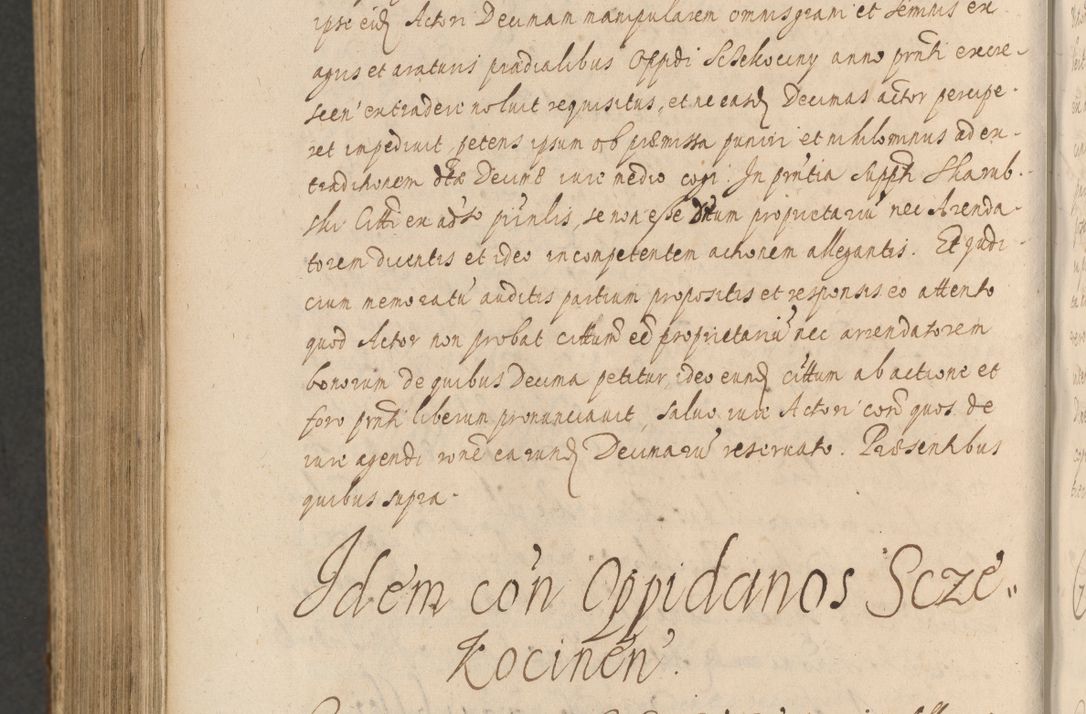 ipse eid Actori Decimam manipularem omnis grani et seminis ex
agris et araturis prædialibus Oppdi Sczekociny anno prnti excre-
scen' extradere noluit requisitus, et ne easd Decimas actor percipe-
ret impedivit, petens ipsum ob præmissa puniri et nihilominus ad ex-
traditionem dtæ Decimæ iure medio cogi. In prntia
ski Citti ex adso prinlis, se non esse dictum proprietariu' nec Arenda-
torem dicentis et ideo incompetentem actionem allegantis. Et Judi-
cium memoratu' auditis partium propositis et responsis eo attento
quod Actor non probat cittum eê proprietariu' nec arrendatorem
bonorum de quibus Decima petitur, ideo eund cittum ab actione et
foro prnti liberum pronunciavit, salvo iure Actori con quos de
iure agendi rone earund Decimaru' reservato. Præsentibus
quibus supra.
Idem con Oppidanos Scze„
Kocinen'.